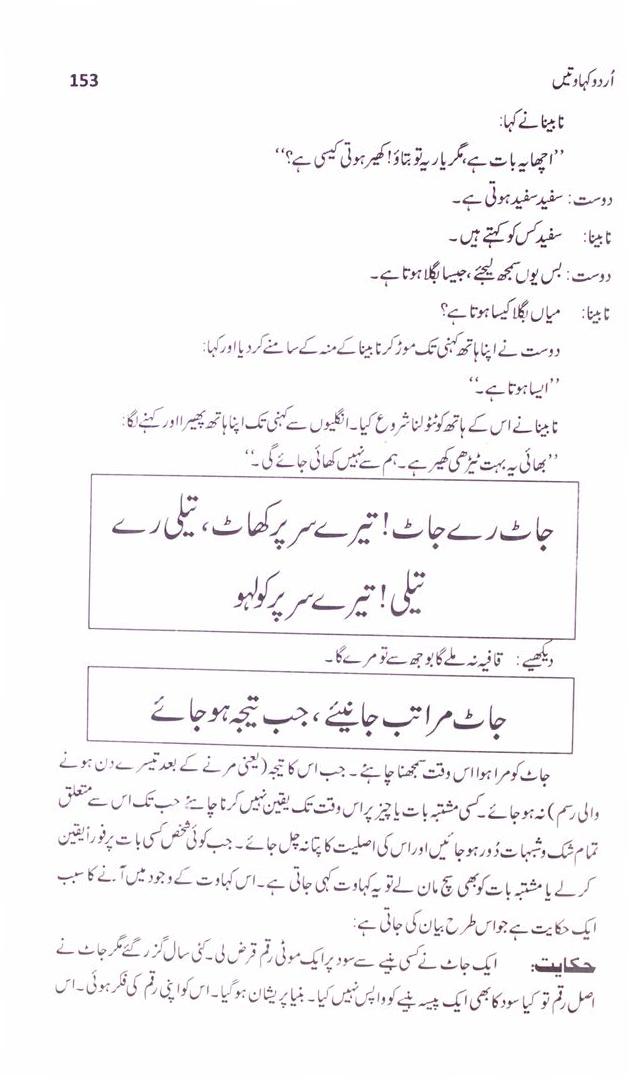 اُردو کہاوتیں 153
نابینا نے کہا:
’’اچھا یہ بات ہے، مگر یار یہ تو بتاؤ! کھیر ہوتی کیسی ہے؟‘‘
دوست: سفید سفید ہوتی ہے۔
نابینا: سفید کس کو کہتے ہیں۔
دوست: بس یوں سمجھ لیجئے، جیسا بگلا ہوتا ہے۔
نابینا: میاں بگلا کیسا ہوتا ہے؟
دوست نے اپنا ہاتھ کہنی تک موڑ کر نابینا کے منہ کے سامنے کر دیا اور کہا:
’’ایسا ہوتا ہے۔‘‘
نابینا نے اس کے ہاتھ کو ٹٹولنا شروع کیا۔ انگلیوں سے کہنی تک اپنا ہاتھ پھیرا اور کہنے لگا:
’’بھائی یہ بہت ٹیڑھی کھیر ہے۔ ہم سے نہیں کھائی جائے گی۔‘‘
جاٹ رے جاٹ! تیرے سر پر کھاٹ، تیلی رے
تیلی! تیرے سر پر کولہو
دیکھیے: قافیہ نہ ملے گا بوجھ سے تو مرے گا۔
جاٹ مراتب جانیئے، جب تیجہ ہو جائے
جاٹ کو مرا ہوا اس وقت سمجھنا چاہئے۔ جب اس کا تیجہ (یعنی مرنے کے بعد تیسرے دن ہونے
والی رسم) نہ ہو جائے۔ کسی مشتبہ بات یا چیز پر اس وقت تک یقین نہیں کرنا چاہئے جب تک اس سے متعلق
تمام شک و شبہات دُور ہو جائیں اور اس کی اصلیت کا پتا نہ چل جائے۔ جب کوئی شخص کسی بات پر فوراً یقین
کر لے یا مشتبہ بات کو بھی سچ مان لے تو یہ کہاوت کہی جاتی ہے۔ اس کہاوت کے وجود میں آنے کا سبب
ایک حکایت ہے جو اس طرح بیان کی جاتی ہے:
حکایت: ایک جاٹ نے کسی بنیے سے سود پر ایک موٹی رقم قرض لی۔ کئی سال گزر گئے مگر جاٹ نے
اصل رقم تو کیا سود کا بھی ایک پیسہ بنیے کو واپس نہیں کیا۔ بنیا پریشان ہو گیا۔ اس کو اپنی رقم کی فکر ہوئی۔ اس